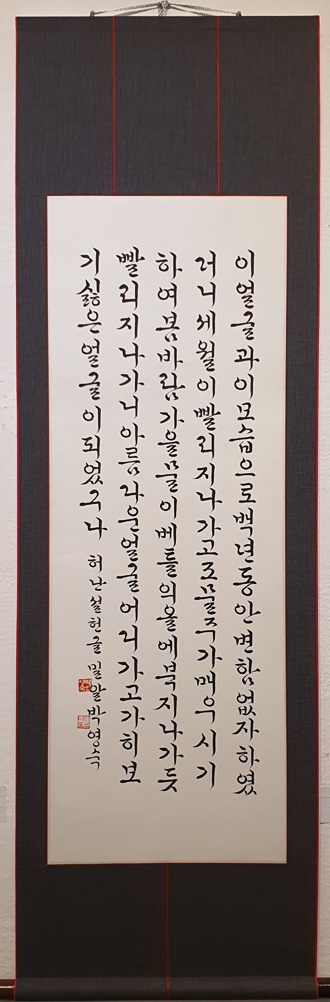 이얼굴과이모습으로백년동안변함없자하였
러니세월이빨리지나가고조물주가매우시기
하여봄바람가을물이베틀의올에북지나가듯
빨리지나가니아름다운얼굴어디가고가히보
기싫은얼굴이되었구나 허난설헌글 밀알박영숙